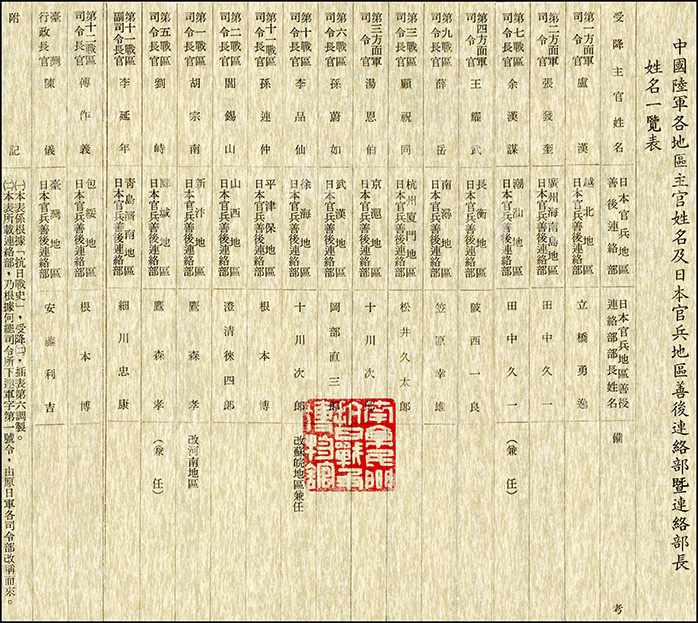 中國陸軍各地區主官姓名及日本官兵地區善後連絡部暨連絡部長
姓名一覽表
受降主官姓名 日本官兵地區善後連絡部 日本官兵地區善後連絡部部長姓名 備考
第一方面軍司令官 盧漢 越北地區日本官兵善後連絡部 立橋勇逸
第二方面軍司令官 張發奎 廣州海南島地區日本官兵善後連絡部 田中久一
第七戰區司令長官 余漢謀 潮汕地區日本官兵善後連絡部 田中久一 （兼任）
第四方面軍司令官 王耀武 長衡地區日本官兵善後連絡部 陂西一良
第九戰區司令長官 薛岳 南潯地區日本官兵善後連絡部 笠原幸雄
第三戰區司令長官 顧祝同 杭州厦門地區日本官兵善後連絡部 松井久太郎
第三方面軍司令官 湯恩伯 京滬地區日本官兵善後連絡部 十川次郎
第六戰區司令長官 孫蔚如 武漢地區日本官兵善後連絡部 岡部直三郎
第十戰區司令長官 李品仙 徐海地區日本官兵善後連絡部 十川次郎 改蘇皖地區兼任
第十一戰區司令長官 孫連仲 平津保地區日本官兵善後連絡部 根本博
第二戰區司令長官 閻錫山 山西地區日本官兵善後連絡部 澄清徠四郎
第一戰區司令長官 胡宗南 新汴地區日本官兵善後連絡部 鷹森孝 改河南地區
第五戰區司令長官 劉峙 郾城地區日本官兵善後連絡部 鷹森孝 （兼任）
第十一戰區副司令長官 李延年 青島濟南地區日本官兵善後連絡部 細川忠康
第十二戰區司令長官 傅作義 包綏地區日本官兵善後連絡部 根本博
臺灣行政長官 陳儀 臺灣地區日本官兵善後連絡部 安藤利吉
附記
㈠本表係根據「抗日戰史」，受降㈡，插表第六調製。
㈡本表所載連絡部，乃根據何總司令所下達軍字第一號令，由原日軍各司令部改稱而來。
南京民間抗日戰爭博物館